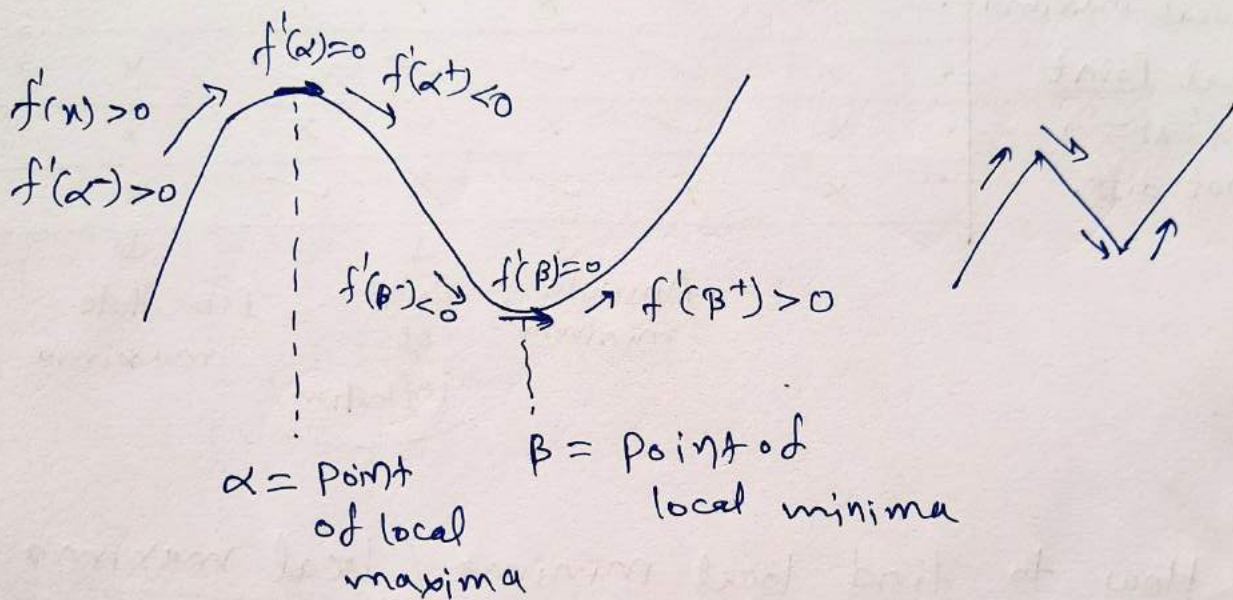 f'(α)=0
f'(x) >0
f'(α⁺) <0
f'(α⁻) >0
f'(β⁻) <0
f'(β)=0
f'(β⁺) >0
α = Point
of local
maxima
β = Point of
local minima